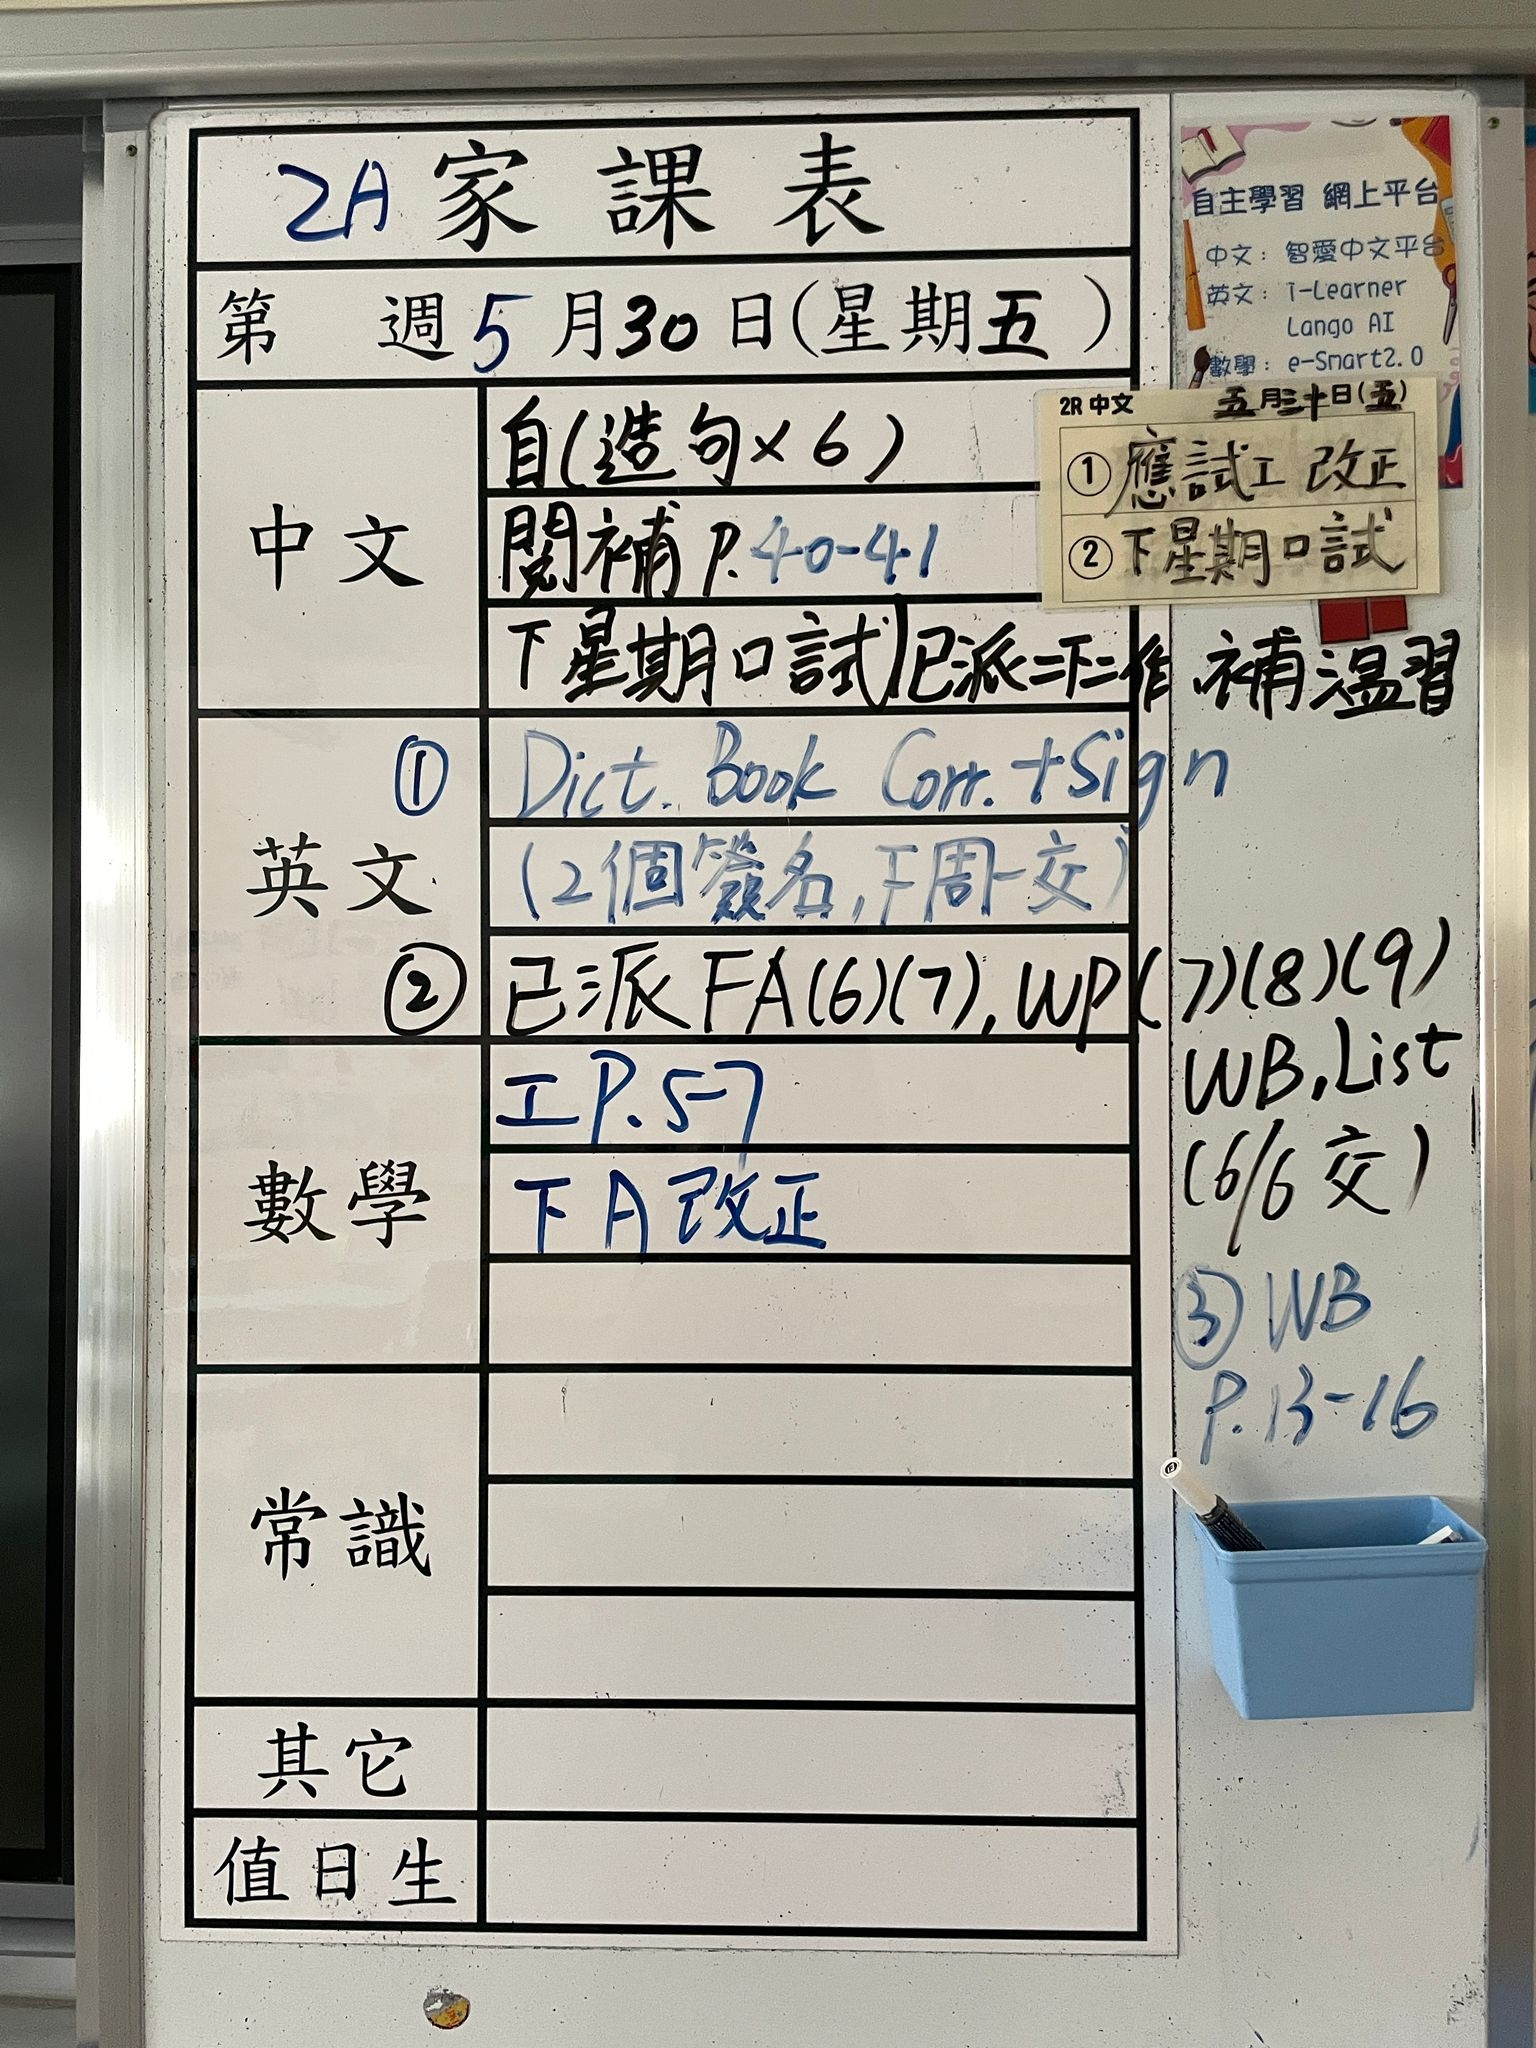 2A 家課表
第 週 5月30日(星期五)
中文
自(造句×6)
閱補 P.40-41
下星期口試 已派二下二作 補溫習
英文
① Dict. Book Corr. + Sign
(2個簽名,下周一交)
② 已派 FA(6)(7), WP(7)(8)(9)
WB, List
(6/6 交)
③ WB
P.13-16
數學
工P.5-7
下A改正
常識
其它
值日生
自主學習 網上平台
中文: 智愛中文平台
英文: i-Learner
Lango AI
數學: e-Smart2.0
2R 中文 五月三十日(五)
① 應試工 改正
② 下星期口試